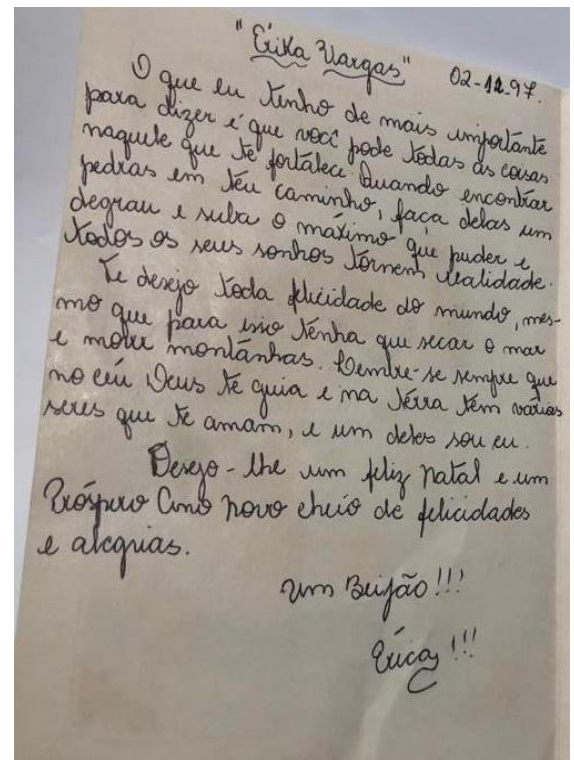 "Érika Vargas" 02-12-97.
O que eu tenho de mais importante
para dizer é que você pode todas as coisas
naquele que te fortalece. Quando encontrar
pedras em teu caminho, faça delas um
degrau e suba o máximo que puder e
todos os seus sonhos tornem realidade.
Te desejo toda felicidade do mundo, mes-
mo que para isso tenha que secar o mar
e mover montanhas. Lembre-se sempre que
no céu Deus te guia e na terra tem vários
seres que te amam, e um deles sou eu.
Desejo-lhe um feliz natal e um
Próspero Ano novo cheio de felicidades
e alegrias.
Um Beijão!!!
Érica!!!